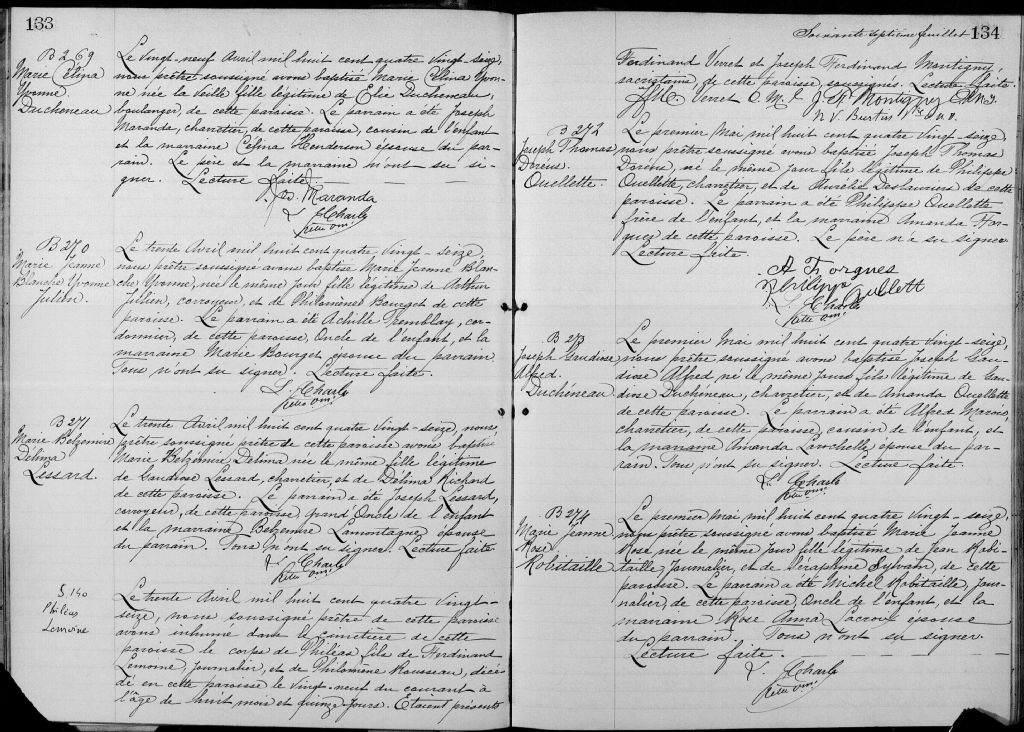 133
B 269
Marie Célina
Yvonne
Ducheneau
Le vingt-neuf Avril mil huit cent quatre vingt-seize,
nous prêtre soussigné avons baptisé Marie Célina Yvon-
ne née la veille fille légitime de Elie Ducheneau,
boulanger, de cette paroisse. Le parrain a été Joseph
Maranda, charretier, de cette paroisse, cousin de l'enfant
et la marraine Célina Henderson épouse du par-
rain. Le père et la marraine n'ont su si-
gner. Lecture faite.
Maranda
Charls
B 270
Marie Jeanne
Blanche Yvonne
Julien.
Le trente Avril mil huit cent quatre vingt-seize,
nous prêtre soussigné avons baptisé Marie Jeanne Blan-
che Yvonne, née le même jour fille légitime de Arthur
Julien, corroyeur, et de Philomène Bourget de cette
paroisse. Le parrain a été Achille Tremblay, cor-
donnier, de cette paroisse, Oncle de l'enfant, et la
marraine Marie Bourget épouse du parrain.
Tous n'ont su signer. Lecture faite.
Charls
B 271
Marie Belzémire
Délima
Lessard.
Le trente Avril mil huit cent quatre vingt-seize, nous,
prêtre soussigné prêtre de cette paroisse avons baptisé
Marie Belzémire Delima née le même fille légitime
de Gaudiose Lessard, charretier, et de Delima Richard
de cette paroisse. Le parrain a été Joseph Lessard,
corroyeur, de cette paroisse grand Oncle de l'enfant
et la marraine Belzémire Lamontagne épouse
du parrain. Tous n'ont su signer. Lecture faite
Charls
S. 140
Philéas
Lemoine
Le trente Avril mil huit cent quatre vingt-
seize, nous soussigné prêtre de cette paroisse
avons inhumé dans le cimetière de cette
paroisse le corps de Philéas fils de Ferdinand
Lemoine, journalier, et de Philomène Rousseau, décé-
dé en cette paroisse le vingt-neuf du courant à
l'âge de huit mois et quinze jours. Etaient présents
Soixante septième feuillet 134
Ferdinand Verret et Joseph Ferdinand Montigny,
sacristains, de cette paroisse, soussignés. Lecture faite.
Verret Montigny
B 272
Joseph Thomas
Dérius.
Ouellette.
Le premier Mai mil huit cent quatre vingt-seize,
nous prêtre soussigné avons baptisé Joseph Thomas
Dérius, né le même jour fils légitime de Philippe
Ouellette, charretier, et de Aurélie Deslauriers de cette
paroisse. Le parrain a été Philippe Ouellette
frère de l'enfant, et la marraine Amanda For-
gues de cette paroisse. Le père n'a su signer
Lecture faite.
A Forgues
Philippe Ouellett
Charls
B 273
Joseph Gaudiose
Alfred.
Duchéneau
Le premier Mai mil huit cent quatre vingt-seize,
nous prêtre soussigné avons baptisé Joseph Gau-
diose Alfred né le même jour fils légitime de Gau-
diose Duchéneau, charretier, et de Amanda Ouellette
de cette paroisse. Le parrain a été Alfred Marois,
charretier, de cette paroisse, cousin de l'enfant, et
la marraine Amanda Larochelle épouse du par-
rain. Tous n'ont su signer. Lecture faite.
Charls
B 274
Marie Jeanne
Rose
Robitaille
Le premier Mai mil huit cent quatre vingt-seize,
nous prêtre soussigné avons baptisé Marie Jeanne
Rose, née le même jour fille légitime de Jean Robi-
taille, journalier, et de Séraphine Sylvain, de cette
paroisse. Le parrain a été Michel Robitaille, jour-
nalier, de cette paroisse, Oncle de l'enfant, et la
marraine Rose Anna Lacroix épouse
du parrain. Tous n'ont su signer.
Lecture faite.
Charls